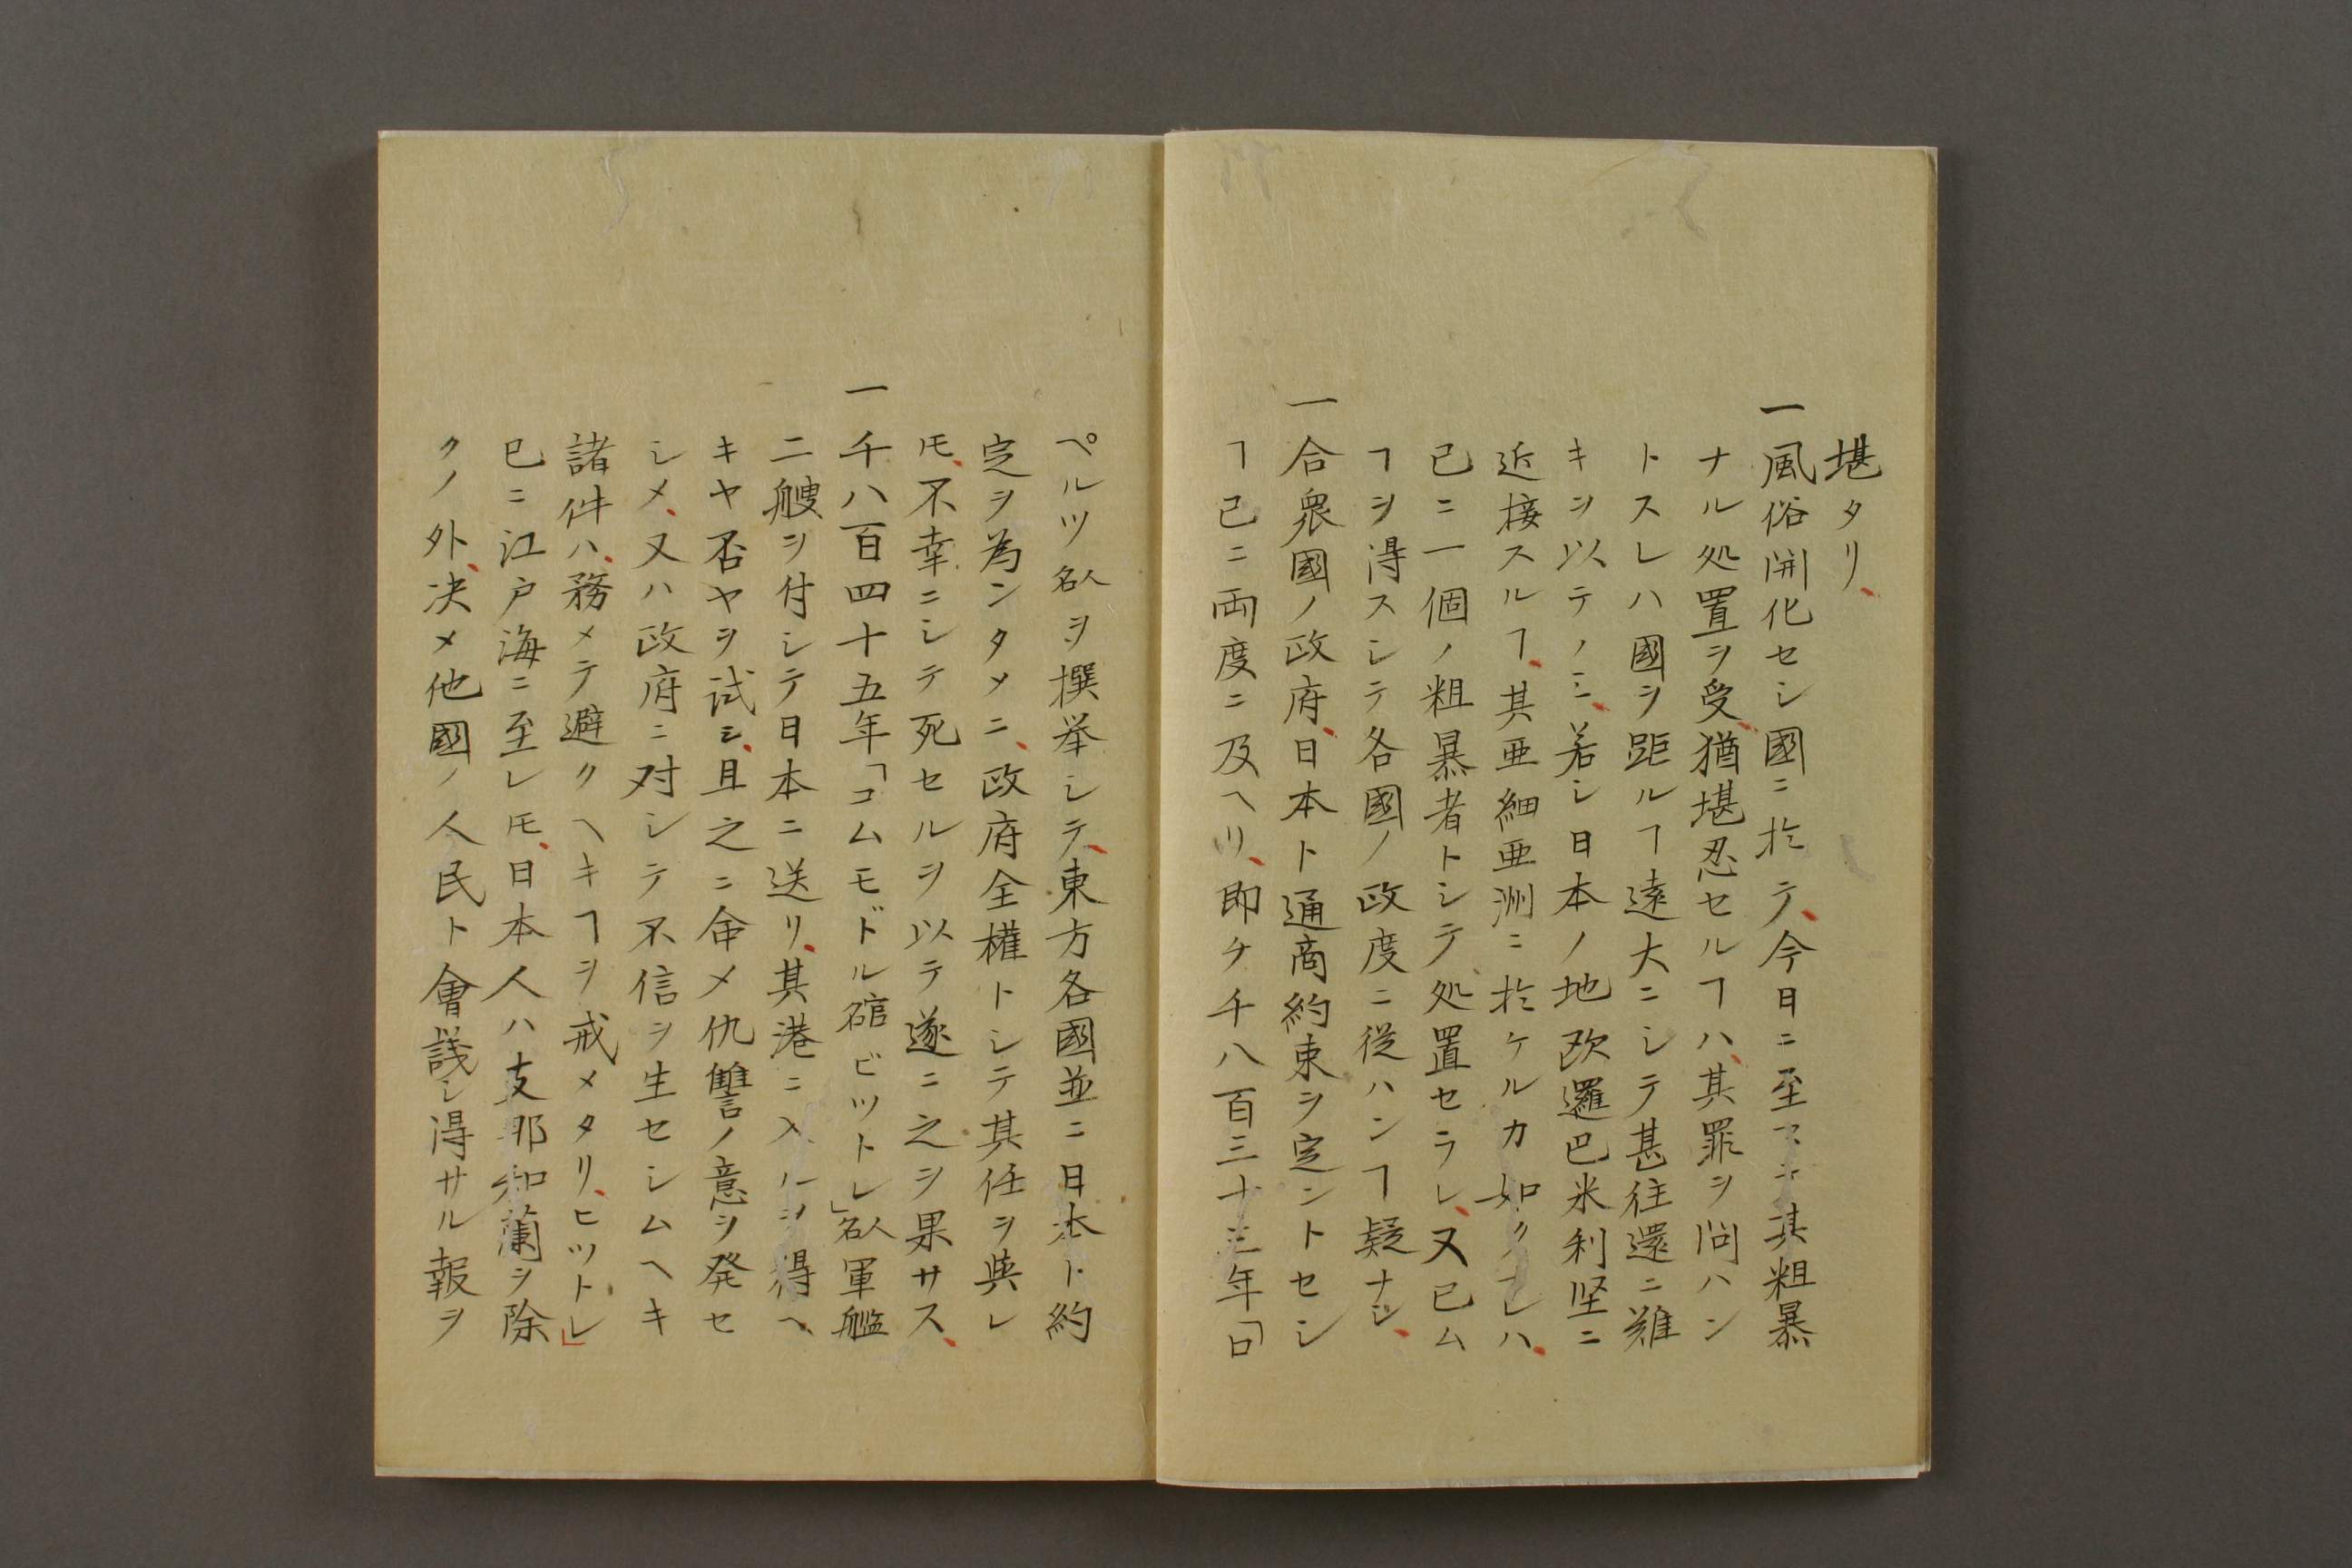 堪タリ、
一風俗開化セシ國ニ於テ、今日ニ至マニ其粗暴
ナル処置ヲ受、猶堪忍セルヿハ、其罪ヲ問ハン
トスレハ國ヲ距ルヿ遠大ニシテ甚往還ニ難
キヲ以テノミ、若シ日本ノ地欧邏巴米利堅ニ
近接スルヿ、其亜細亜洲ニ於ケルカ如クナレハ、
已ニ一個ノ粗暴者トシテ処置セラレ、又已ム
ヿヲ得スシテ各國ノ政度ニ従ハンヿ疑ナシ、
一合衆國ノ政府、日本ト通商約束ヲ定ントセシ
ヿ已ニ両度ニ及ヘリ、即チ千八百三十三年「ロ
ペルツ名人ヲ撰挙シテ、東方各國並ニ日本ト約
定ヲ為ンタメニ、政府全權トシテ其任ヲ與レ
𪜈、不幸ニシテ死セルヲ以テ遂ニ之ヲ果サス、
一千八百四十五年「コムモドル𥔎ビツトレ」名人軍艦
二艘ヲ付シテ日本ニ送リ、其港ニ入ルヲ得ヘ
キヤ否ヤヲ試ミ、且之ニ命メ仇讐ノ意ヲ発セ
シメ、又ハ政府ニ対シテ不信ヲ生セシムヘキ
諸件ハ、務メテ避クヘキヿヲ戒メタリ、ヒツトレ」
已ニ江戸海ニ至レ𪜈、日本人ハ支那和蘭ヲ除
クノ外、決メ他國ノ人民ト會議シ得サル報ヲ